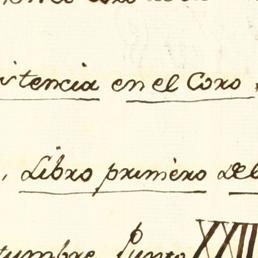 istencia en el Coro,
, Libro primero del
tumbre, Punto XXII